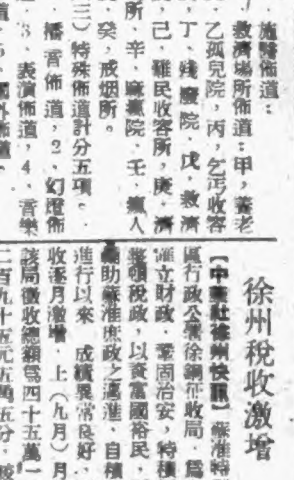 ．施醫佈道：
．救濟塲所佈道：甲，養老
乙孤兒院，丙，乞丐收容
丁，殘廢院，戊，救濟
己，難民收容所，庚，濟
所，辛，麻瘋院，壬，瘋人
癸，戒烟所。
三）特殊佈道計分五項。
播音佈道，2，幻燈佈
3，表演佈道，4，音樂
道，5，國外佈道。
徐州稅收激增
【中華社徐州快訊】蘇淮特
區行政公署徐銅征收局，爲
確立財政，鞏固治安，特積
整頓稅政，以資富國裕民，
輔助蘇淮庶政之邁進，自積
進行以來，成績異常良好，
收逐月激增，上（九月）月
該局徵收總額爲四十五萬一
二百九十五元五角五分，較